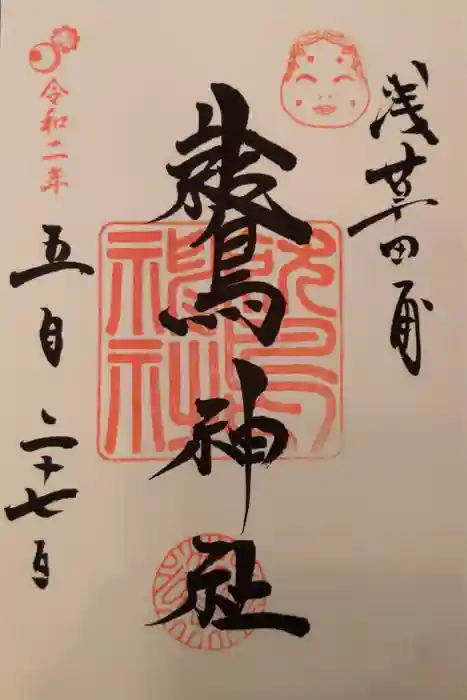 浅草田甫
鷲神社
令和二年
五月二十七日